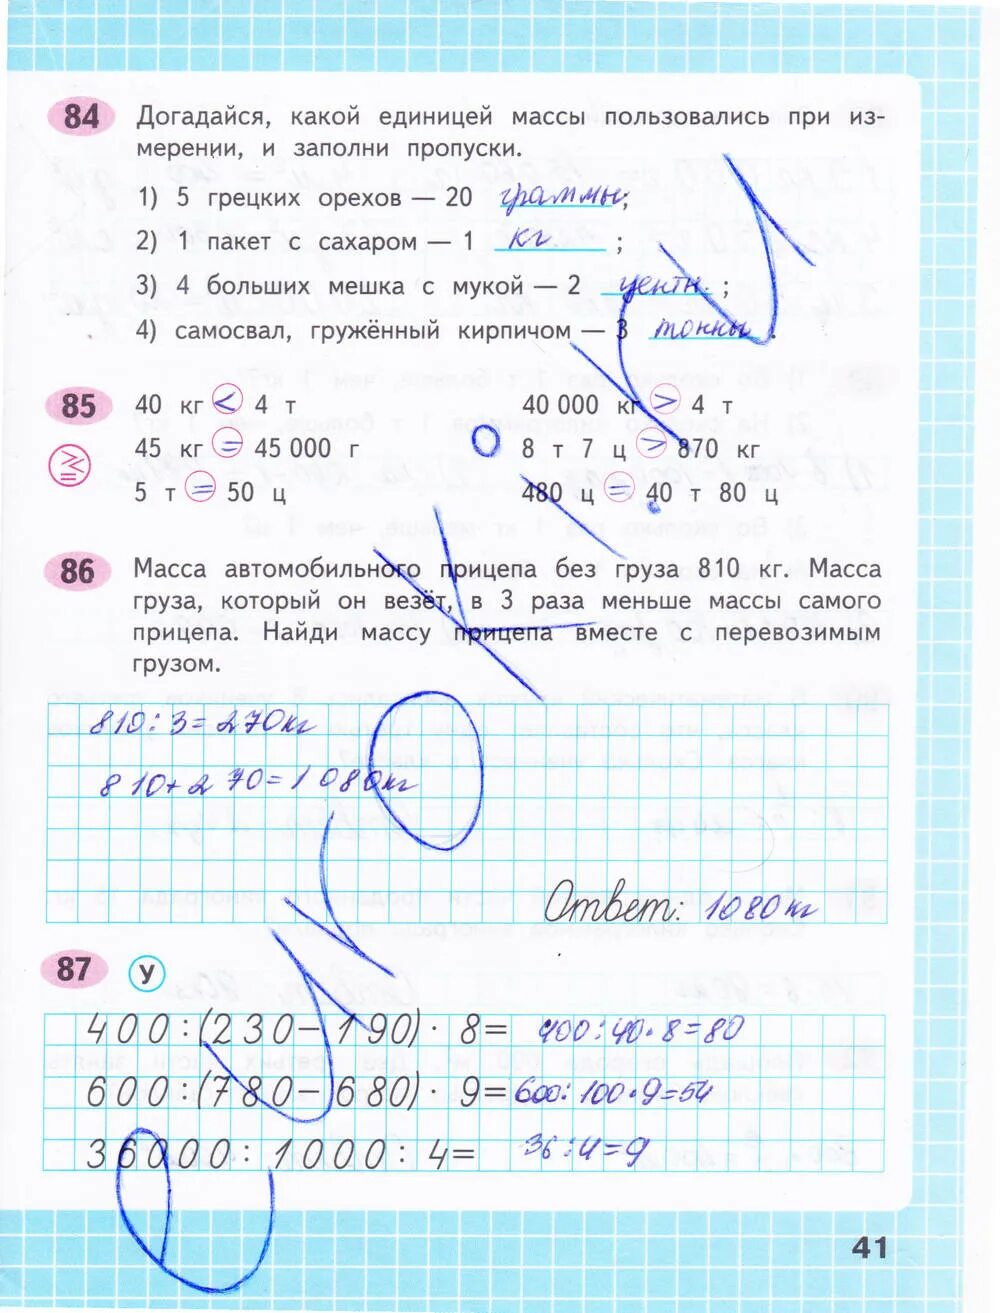 84 Догадайся, какой единицей массы пользовались при из-
мерении, и заполни пропуски.
1) 5 грецких орехов — 20 граммы;
2) 1 пакет с сахаром — 1 кг ;
3) 4 больших мешка с мукой — 2 центн. ;
4) самосвал, гружённый кирпичом — 3 тонны .
85 40 кг < 4 т 40 000 кг > 4 т
45 кг = 45 000 г 8 т 7 ц > 870 кг
5 т = 50 ц 480 ц = 40 т 80 ц
86 Масса автомобильного прицепа без груза 810 кг. Масса
груза, который он везёт, в 3 раза меньше массы самого
прицепа. Найди массу прицепа вместе с перевозимым
грузом.
810:3=270кг
810+270=1080кг
Ответ: 1080кг
87 У
400:(230-190)·8= 400:40·8=80
600:(780-680)·9= 600:100·9=54
36000:1000:4= 36:4=9
41